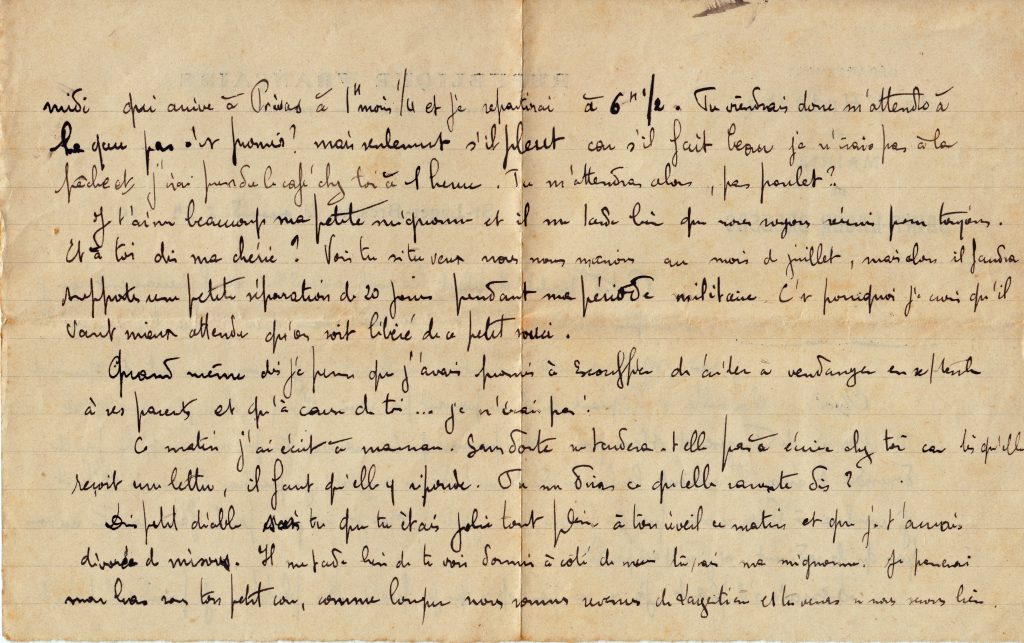 midi qui arrive à Privas à 1h moins 1/4 et je repartirai à 6h 1/2. Tu viendrais donc m'attendre à
la gare pas c'est promis? mais seulement s'il pleut car s'il fait beau je n'irais pas à la
pêche et j'irai prendre le café chez toi à 1 heure. Tu m'attendras alors, pas poulet??
Je t'aime beaucoup ma petite mignonne et il me tarde bien que nous soyons réunis pour toujours.
Et à toi dis ma chérie? Vois tu si tu veux nous nous marions au mois de juillet, mais alors il faudra
supporter une petite séparation de 20 jours pendant ma période militaire. C'est pourquoi je crois qu'il
vaut mieux attendre qu'on soit libéré de ce petit souci.
Quand même dis je pense que j'avais promis à Escouffier de l'aider à vendanger en septembre
à ses parents et qu'à cause de toi ... je n'irais pas!
Ce matin j'ai écrit à maman. Sans doute ne tardera-t-elle pas à écrire chez toi car dès qu'elle
reçoit une lettre, il faut qu'elle y réponde. Tu me diras ce qu'elle raconte dis?
Dis petit diable sais tu que tu étais jolie tout plein à ton réveil ce matin et que je t'aurais
dévorée de mimis. Il me tarde bien de te voir dormir à côté de moi ma mignonne. Je passerai
mon bras sous ton petit cou, comme lorsque nous sommes revenus de et tu verras si nous serons bien.